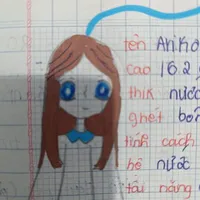 tên Ariko
cao 16.2
thik nước
ghét
tính cách
hệ nước
tài năng